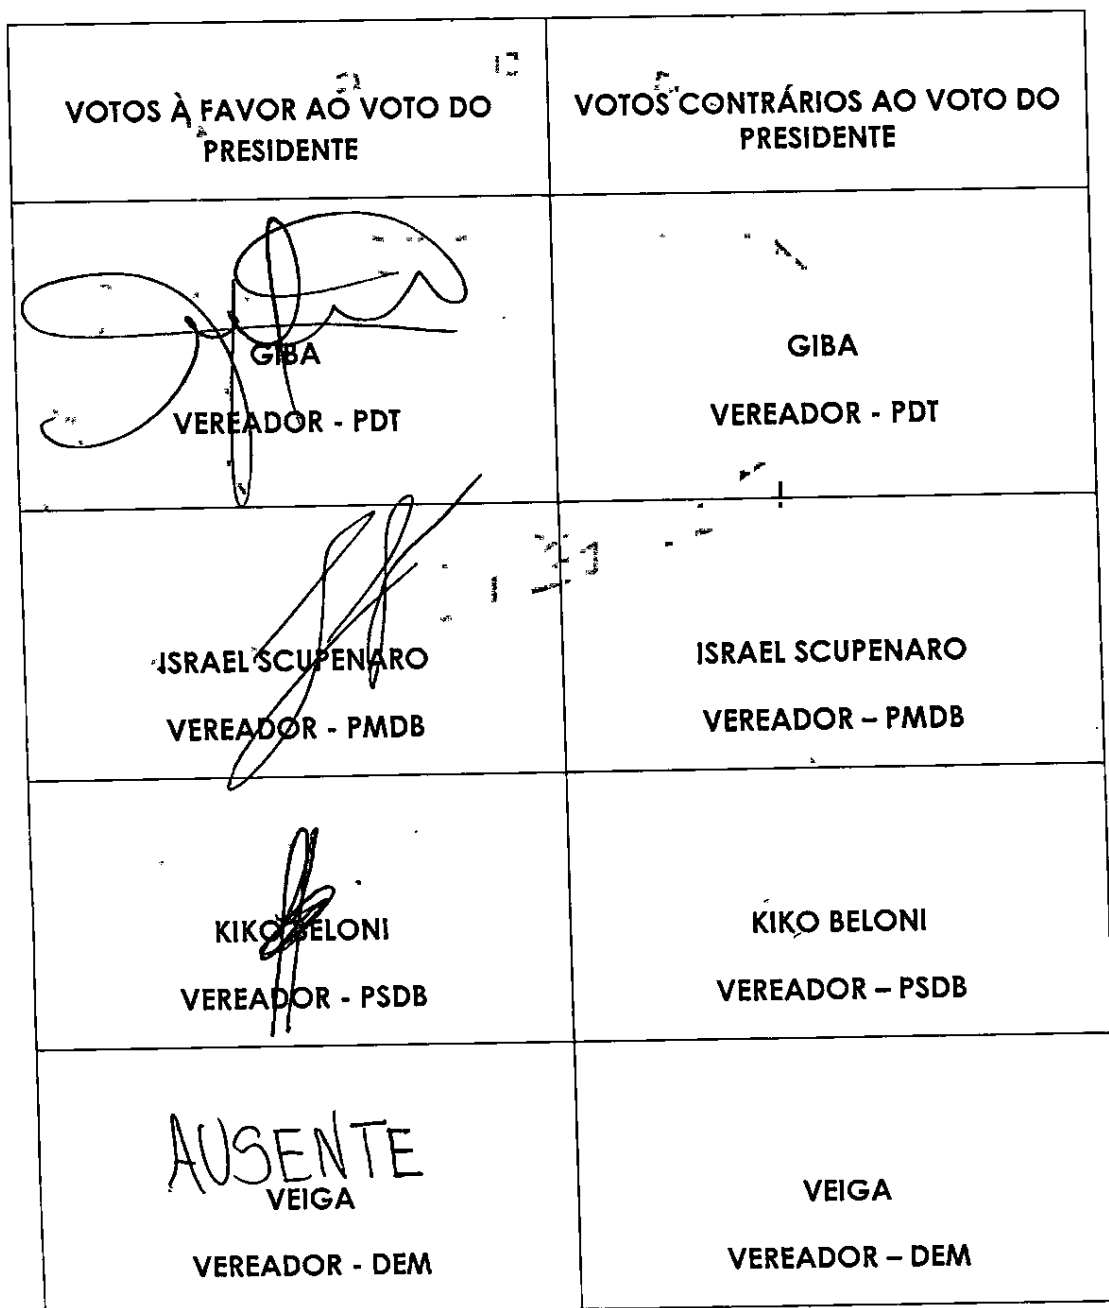 VOTOS À FAVOR AO VOTO DO
PRESIDENTE
VOTOS CONTRÁRIOS AO VOTO DO
PRESIDENTE
GIBA
VEREADOR - PDT
GIBA
VEREADOR - PDT
ISRAEL SCUPENARO
VEREADOR - PMDB
ISRAEL SCUPENARO
VEREADOR – PMDB
KIKO BELONI
VEREADOR - PSDB
KIKO BELONI
VEREADOR – PSDB
AUSENTE
VEIGA
VEREADOR - DEM
VEIGA
VEREADOR – DEM